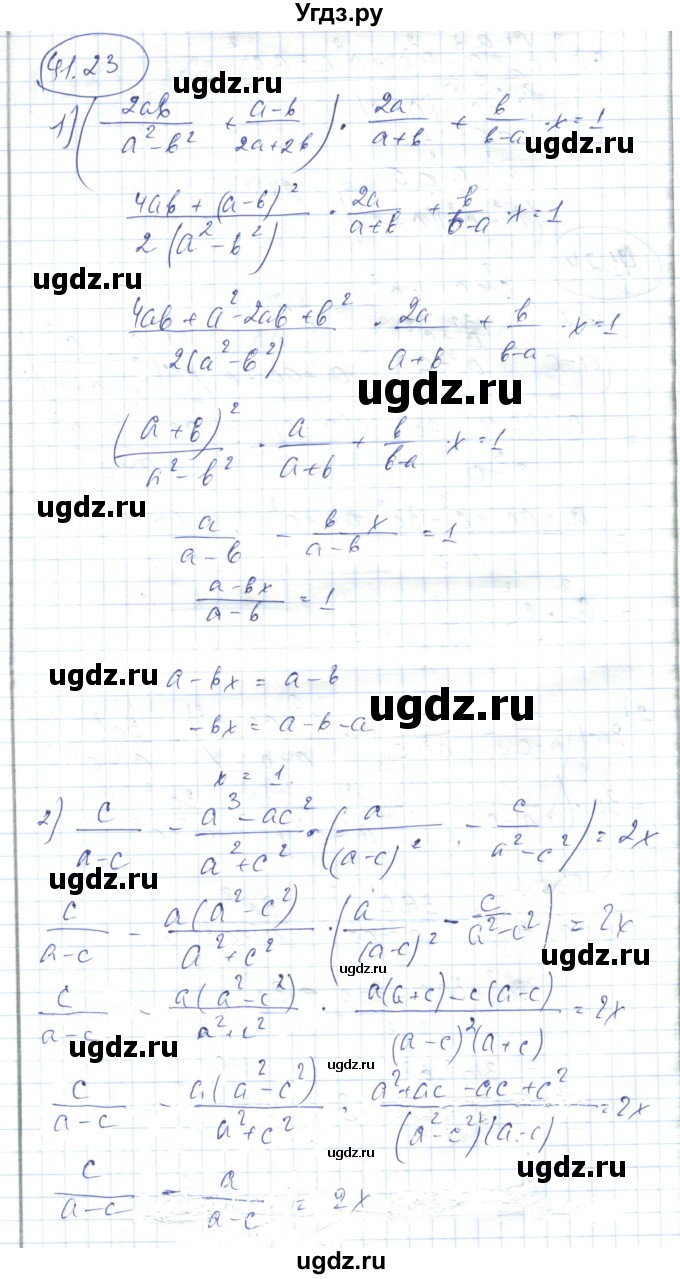 Угдз.ру
41.23
ugdz.ru
1) (2ab/(a²-b²) + (a-b)/(2a+2b)) · 2a/(a+b) + b/(b-a) · x = 1
ugdz.ru
(4ab + (a-b)²)/(2(a²-b²)) · 2a/(a+b) + b/(b-a) · x = 1
ugdz.ru
(4ab + a² - 2ab + b²)/(2(a²-b²)) · 2a/(a+b) + b/(b-a) · x = 1
ugdz.ru
(a+b)²/(a²-b²) · a/(a+b) + b/(b-a) · x = 1
ugdz.ru
a/(a-b) - b x/(a-b) = 1
(a-bx)/(a-b) = 1
ugdz.ru
a - bx = a - b
ugdz.ru
-bx = a - b - a
x = 1.
2) c/(a-c) - (a³-ac²)/(a²+c²) · (a/(a-c)² - c/(a²-c²)) = 2x
ugdz.ru
c/(a-c) - a(a²-c²)/(a²+c²) · (a/(a-c)² - c/(a²-c²)) = 2x
ugdz.ru
c/(a-c) - a(a²-c²)/(a²+c²) · (a(a+c) - c(a-c))/((a-c)²(a+c)) = 2x
ugdz.ru
c/(a-c) - a(a²-c²)/(a²+c²) · (a²+ac-ac+c²)/((a²-c²)(a-c)) = 2x
ugdz.ru
ugdz.ru
c/(a-c) - a/(a-c) = 2x
ugdz.ru
ugdz.ru